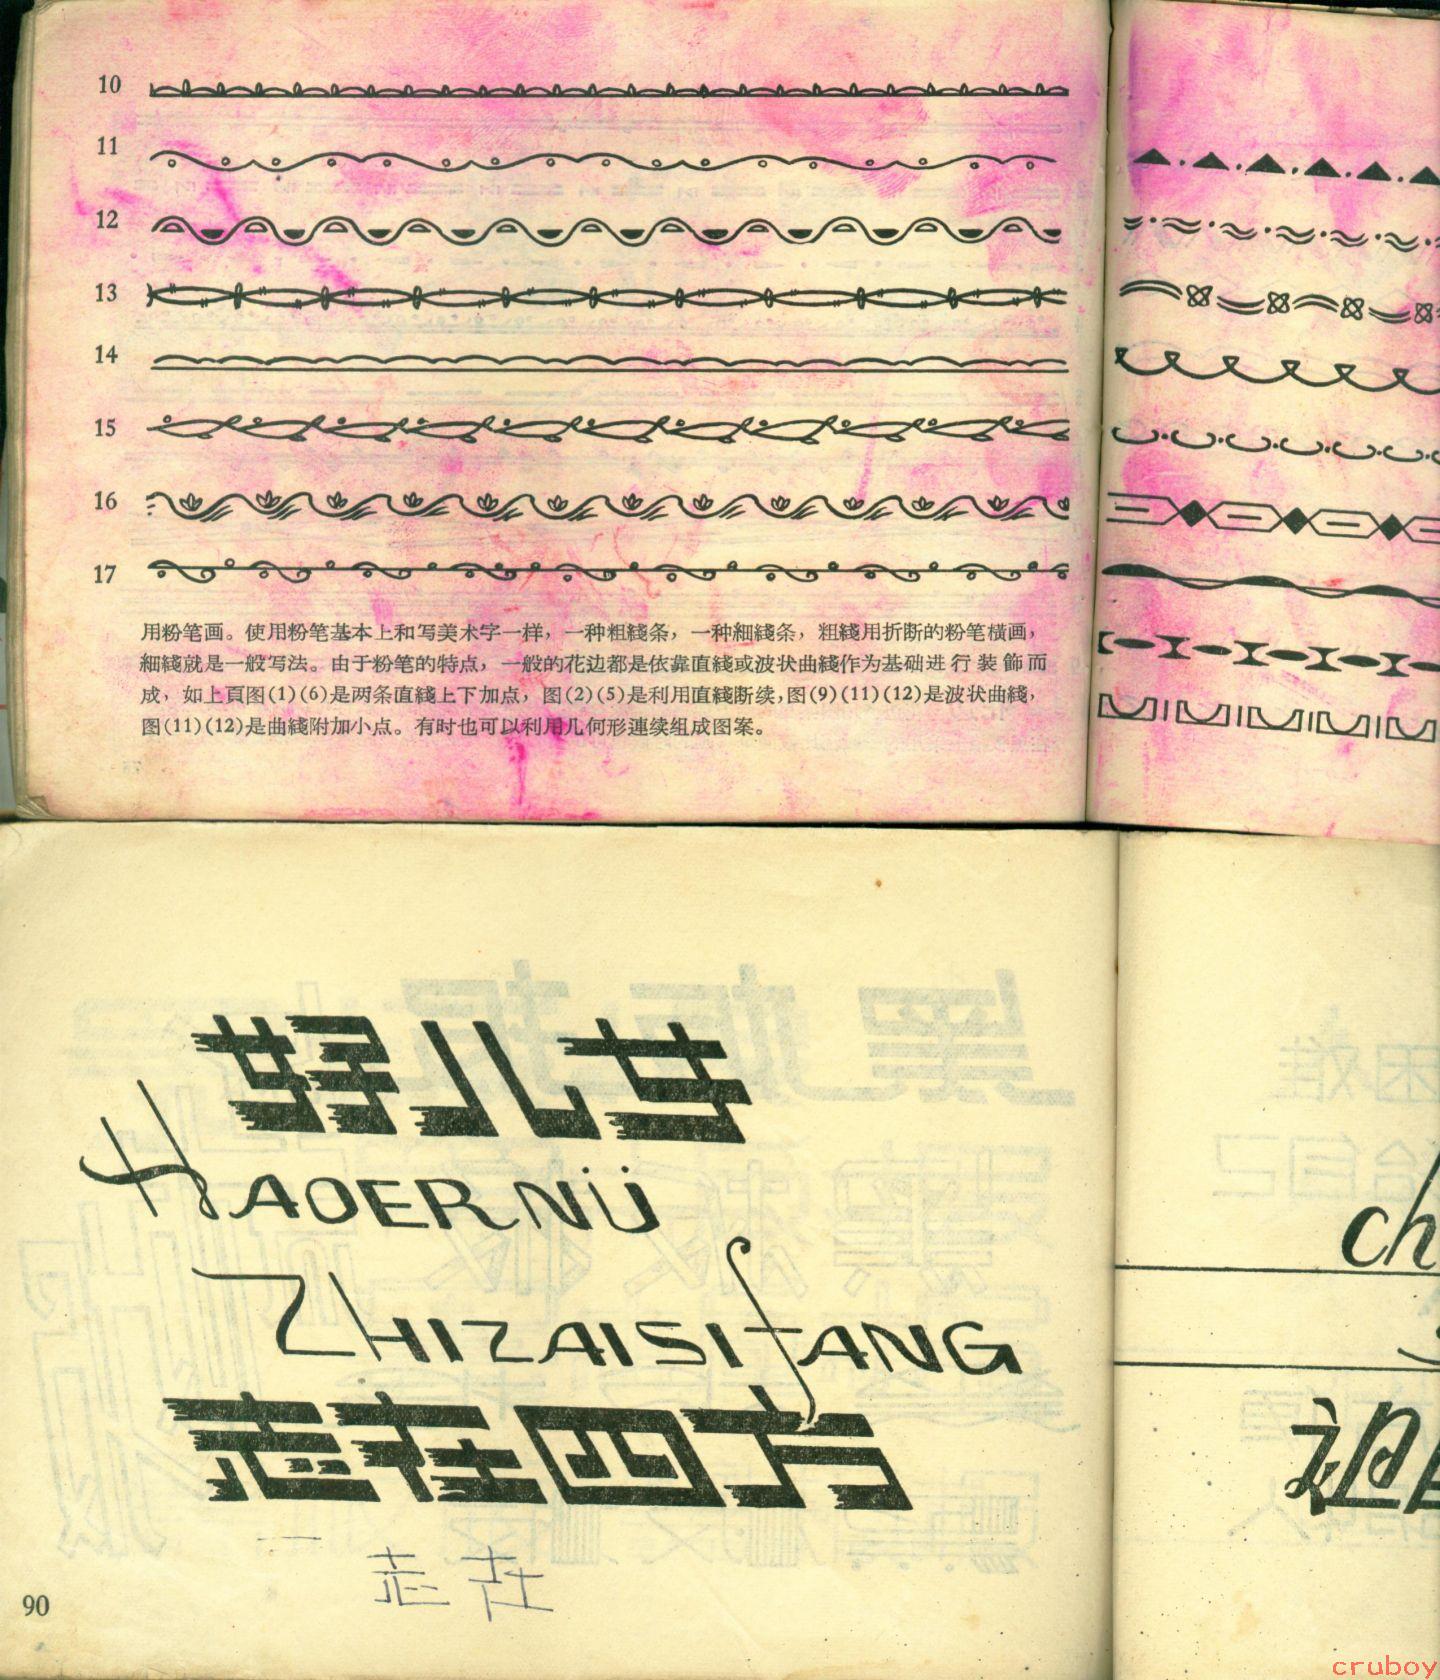 10
11
12
13
14
15
16
17
用粉笔画。使用粉笔基本上和写美术字一样，一种粗綫条，一种細綫条，粗綫用折断的粉笔橫画，
細綫就是一般写法。由于粉笔的特点，一般的花边都是依靠直綫或波状曲綫作为基础进行装飾而
成，如上頁图(1)(6)是两条直綫上下加点，图(2)(5)是利用直綫断续,图(9)(11)(12)是波状曲綫，
图(11)(12)是曲綫附加小点。有时也可以利用几何形連续組成图案。
好儿女
HAOER NÜ
ZHIZAISIfANG
志在四方
志在
90
ch
cruboy